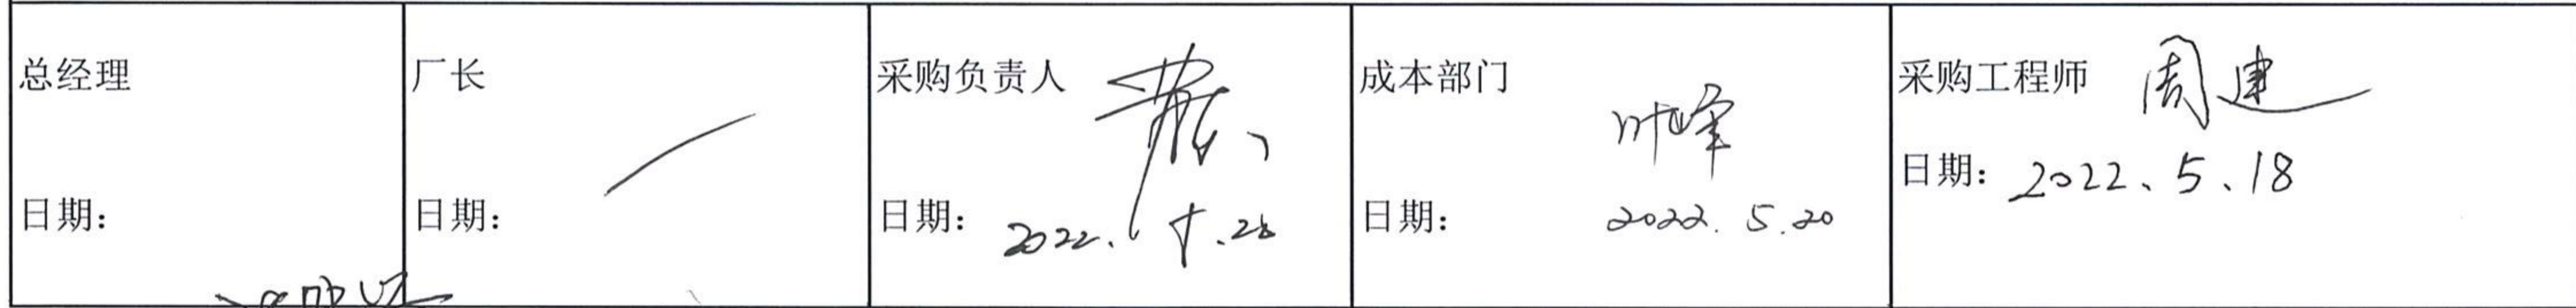 总经理
日期：
厂长
日期：
采购负责人
日期：2022.
成本部门
叶峰
日期：2022.5.20
采购工程师 周建
日期：2022、5、18